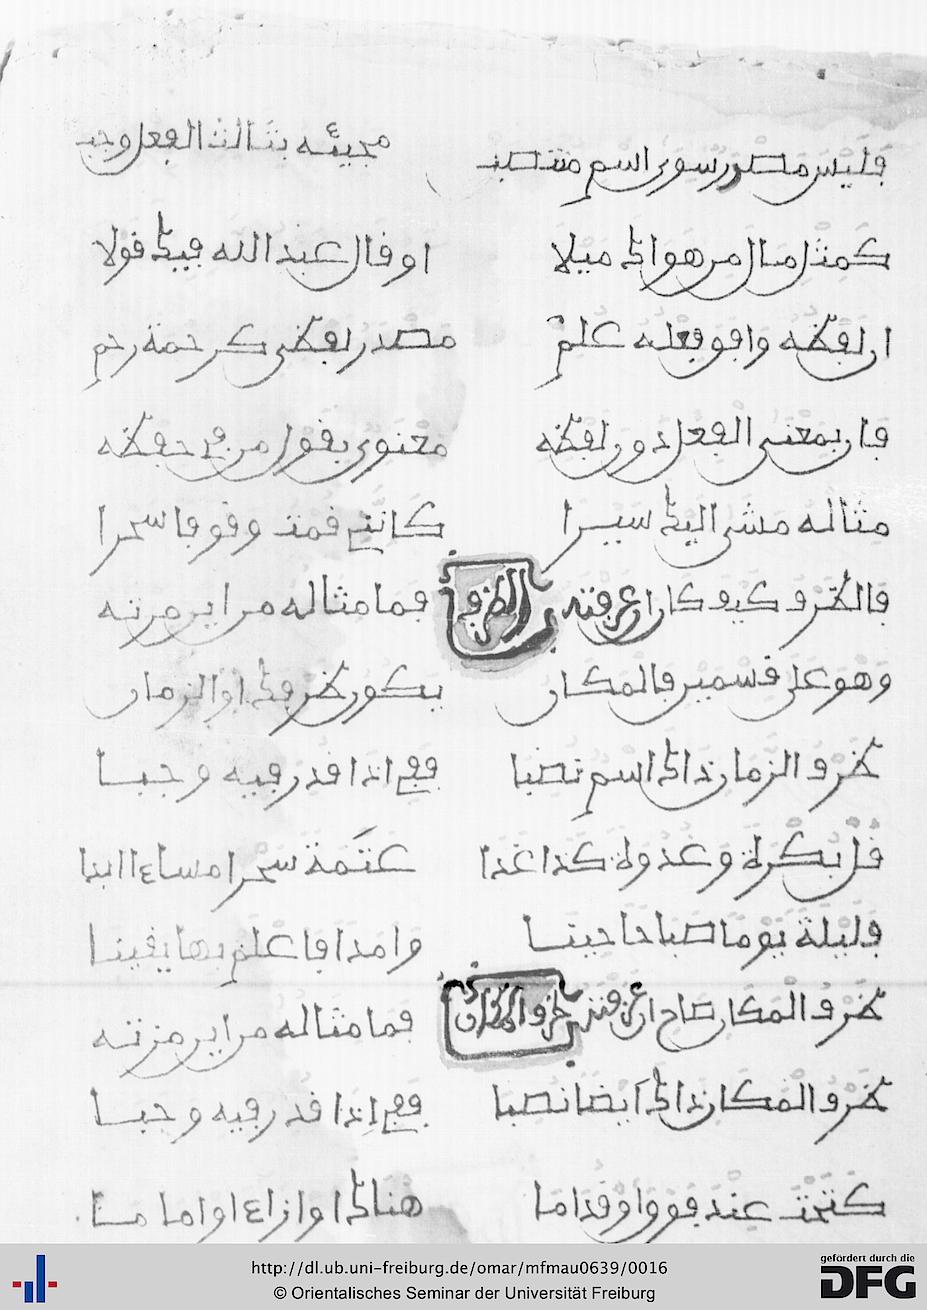 فليس مصدر سوى اسم منتصب مجيئه بثالث الفعل وجب
كمثل مال من هواك ميلا او قال عبد الله فيك قولا
ان لفظه وافق فعله علم مصدر لفظي كرحمة رحم
فان بمعنى الفعل دون لفظه معنوي يقول من في حفظه
مثاله مشى اليك سيرا كانني قمت وقوفا سحرا
فالظرف كيف كان ان عرفته الظرف فما مثاله من اين مزته
وهو على قسمين فالمكان يكون ظرفك او الزمان
ظرف الزمان ذاك اسم نصبا ففي اذا قدر فيه وجبا
قل بكرة وغدوة كذا غدا عتمة سحرا مساءا ابدا
فليلة يوما صباحا حينا وامدا فاعلم بها يقينا
ظرف المكان صاح ان عرفته ظرف المكان فما مثاله من اين مزته
ظرف المكان ذاك ايضا نصبا ففي اذا قدر فيه وجبا
كتحت عند فوق او قداما هناك او ازاء او اماما
http://dl.ub.uni-freiburg.de/omar/mfmau0639/0016
© Orientalisches Seminar der Universität Freiburg
gefördert durch die
DFG